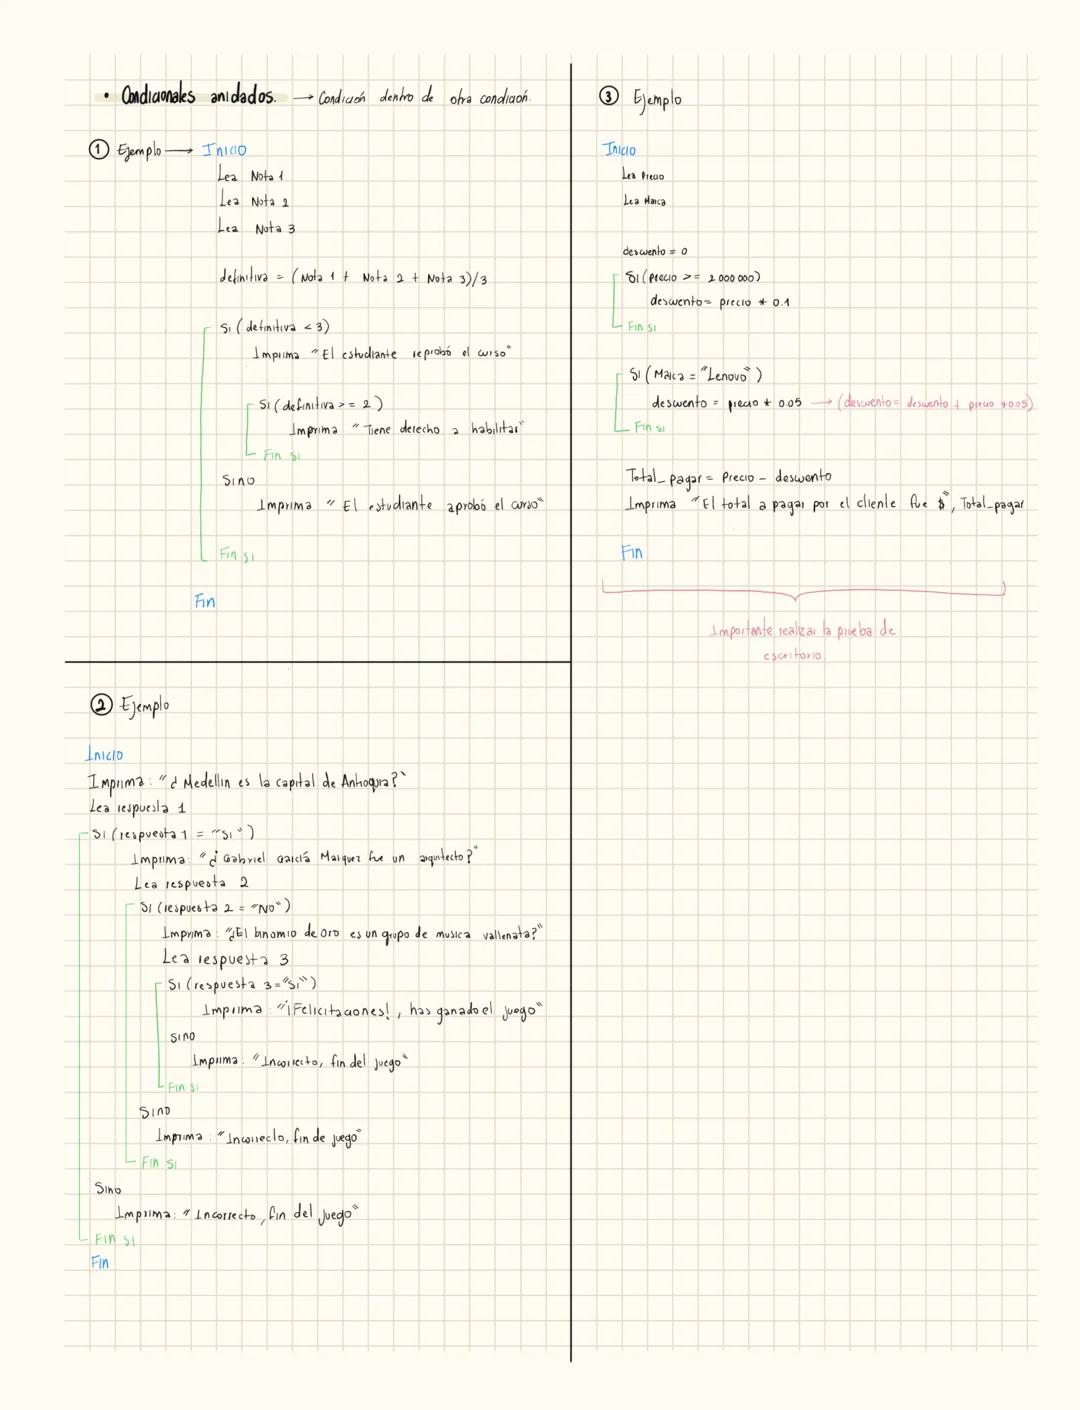 • Condicionales anidados. → Condición dentro de otra condición.
① Ejemplo → Inicio
Lea Nota 1
Lea Nota 2
Lea Nota 3
definitiva = (Nota 1 + Nota 2 + Nota 3)/3
Si (definitiva < 3)
Imprima "El estudiante reprobó el curso"
Si (definitiva >= 2)
Imprima "Tiene derecho a habilitar"
Fin si
Sino
Imprima "El estudiante aprobó el curso"
Fin si
Fin
② Ejemplo
Inicio
Imprima: "¿Medellin es la capital de Antioquia?"
Lea respuesta 1
Si (respuesta 1 = "Si")
Imprima: "¿Gabriel García Marquez fue un arquitecto?"
Lea respuesta 2
Si (respuesta 2 = "No")
Imprima: "¿El binomio de oro es un grupo de musica vallenata?"
Lea respuesta 3
Si (respuesta 3="Si")
Imprima: "¡Felicitaciones!, has ganado el juego"
sino
Imprima: "Incorrecto, fin del juego"
Fin si
Sino
Imprima: "Incorrecto, fin de juego"
Fin si
Sino
Imprima: "Incorrecto, fin del juego"
Fin si
Fin
③ Ejemplo
Inicio
Lea Precio
Lea Marca
descuento = 0
Si (Precio >= 2000000)
descuento = precio * 0.1
Fin si
Si (Marca = "Lenovo")
descuento = precio * 0.05 → (descuento = descuento + precio * 0.05)
Fin si
Total_pagar = Precio - descuento
Imprima "El total a pagar por el cliente fue $", Total_pagar
Fin
Importante realizar la prueba de
escritorio.